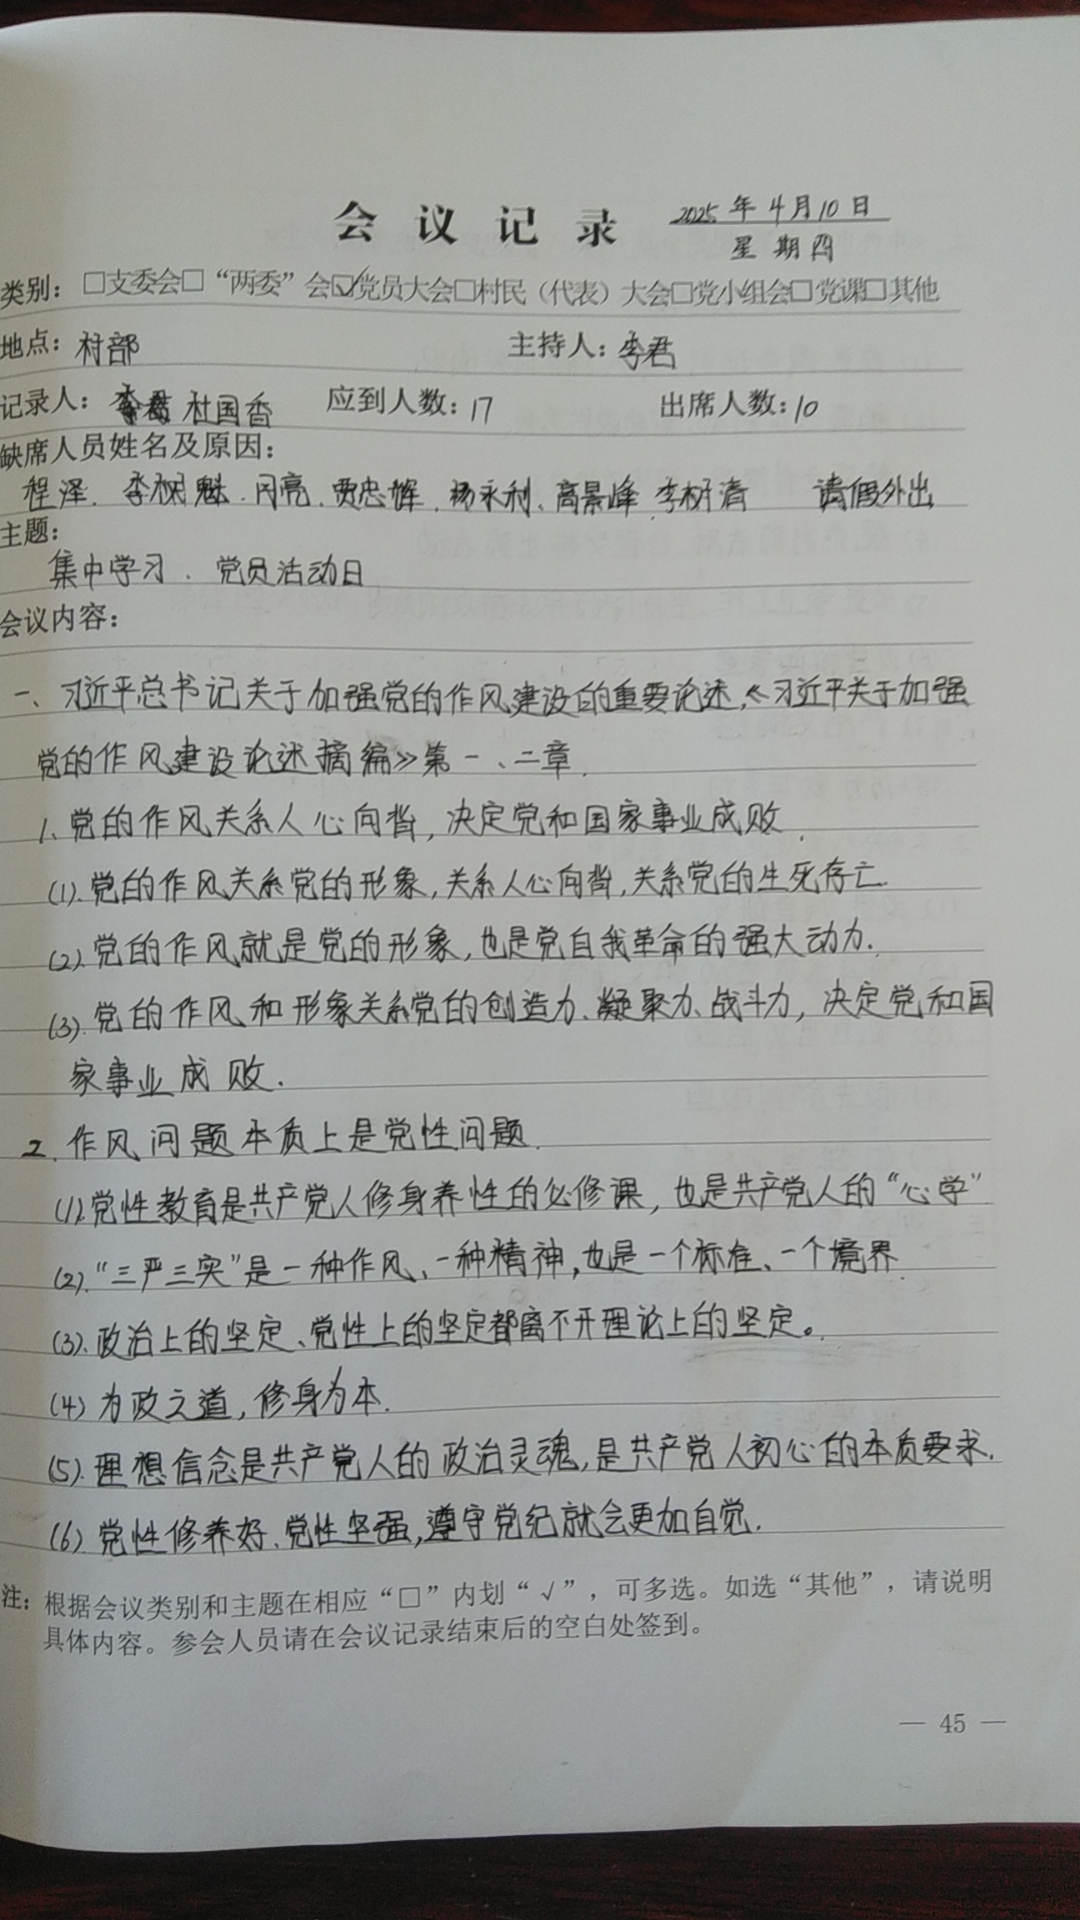 会议记录 2025年4月10日
星期四
类别：□支委会□“两委”会☑党员大会□村民（代表）大会□党小组会□党课□其他
地点：村部 主持人：李君
记录人：杜国香 应到人数：17 出席人数：10
缺席人员姓名及原因：
程泽、李树魁、闫亮、贾忠辉、杨永利、高景峰、李树清 请假外出
主题：
集中学习、党员活动日
会议内容：
一、习近平总书记关于加强党的作风建设的重要论述，《习近平关于加强
党的作风建设论述摘编》第一、二章.
1、党的作风关系人心向背，决定党和国家事业成败.
(1).党的作风关系党的形象，关系人心向背，关系党的生死存亡.
(2).党的作风就是党的形象，也是党自我革命的强大动力.
(3).党的作风和形象关系党的创造力、凝聚力、战斗力，决定党和国
家事业成败.
2、作风问题本质上是党性问题.
(1).党性教育是共产党人修身养性的必修课，也是共产党人的“心学”
(2).“三严三实”是一种作风、一种精神，也是一个标准、一个境界.
(3).政治上的坚定、党性上的坚定都离不开理论上的坚定。
(4)为政之道，修身为本.
(5).理想信念是共产党人的政治灵魂，是共产党人初心的本质要求.
(6).党性修养好、党性坚强，遵守党纪就会更加自觉.
注：根据会议类别和主题在相应“□”内划“√”，可多选。如选“其他”，请说明
具体内容。参会人员请在会议记录结束后的空白处签到。
— 45 —